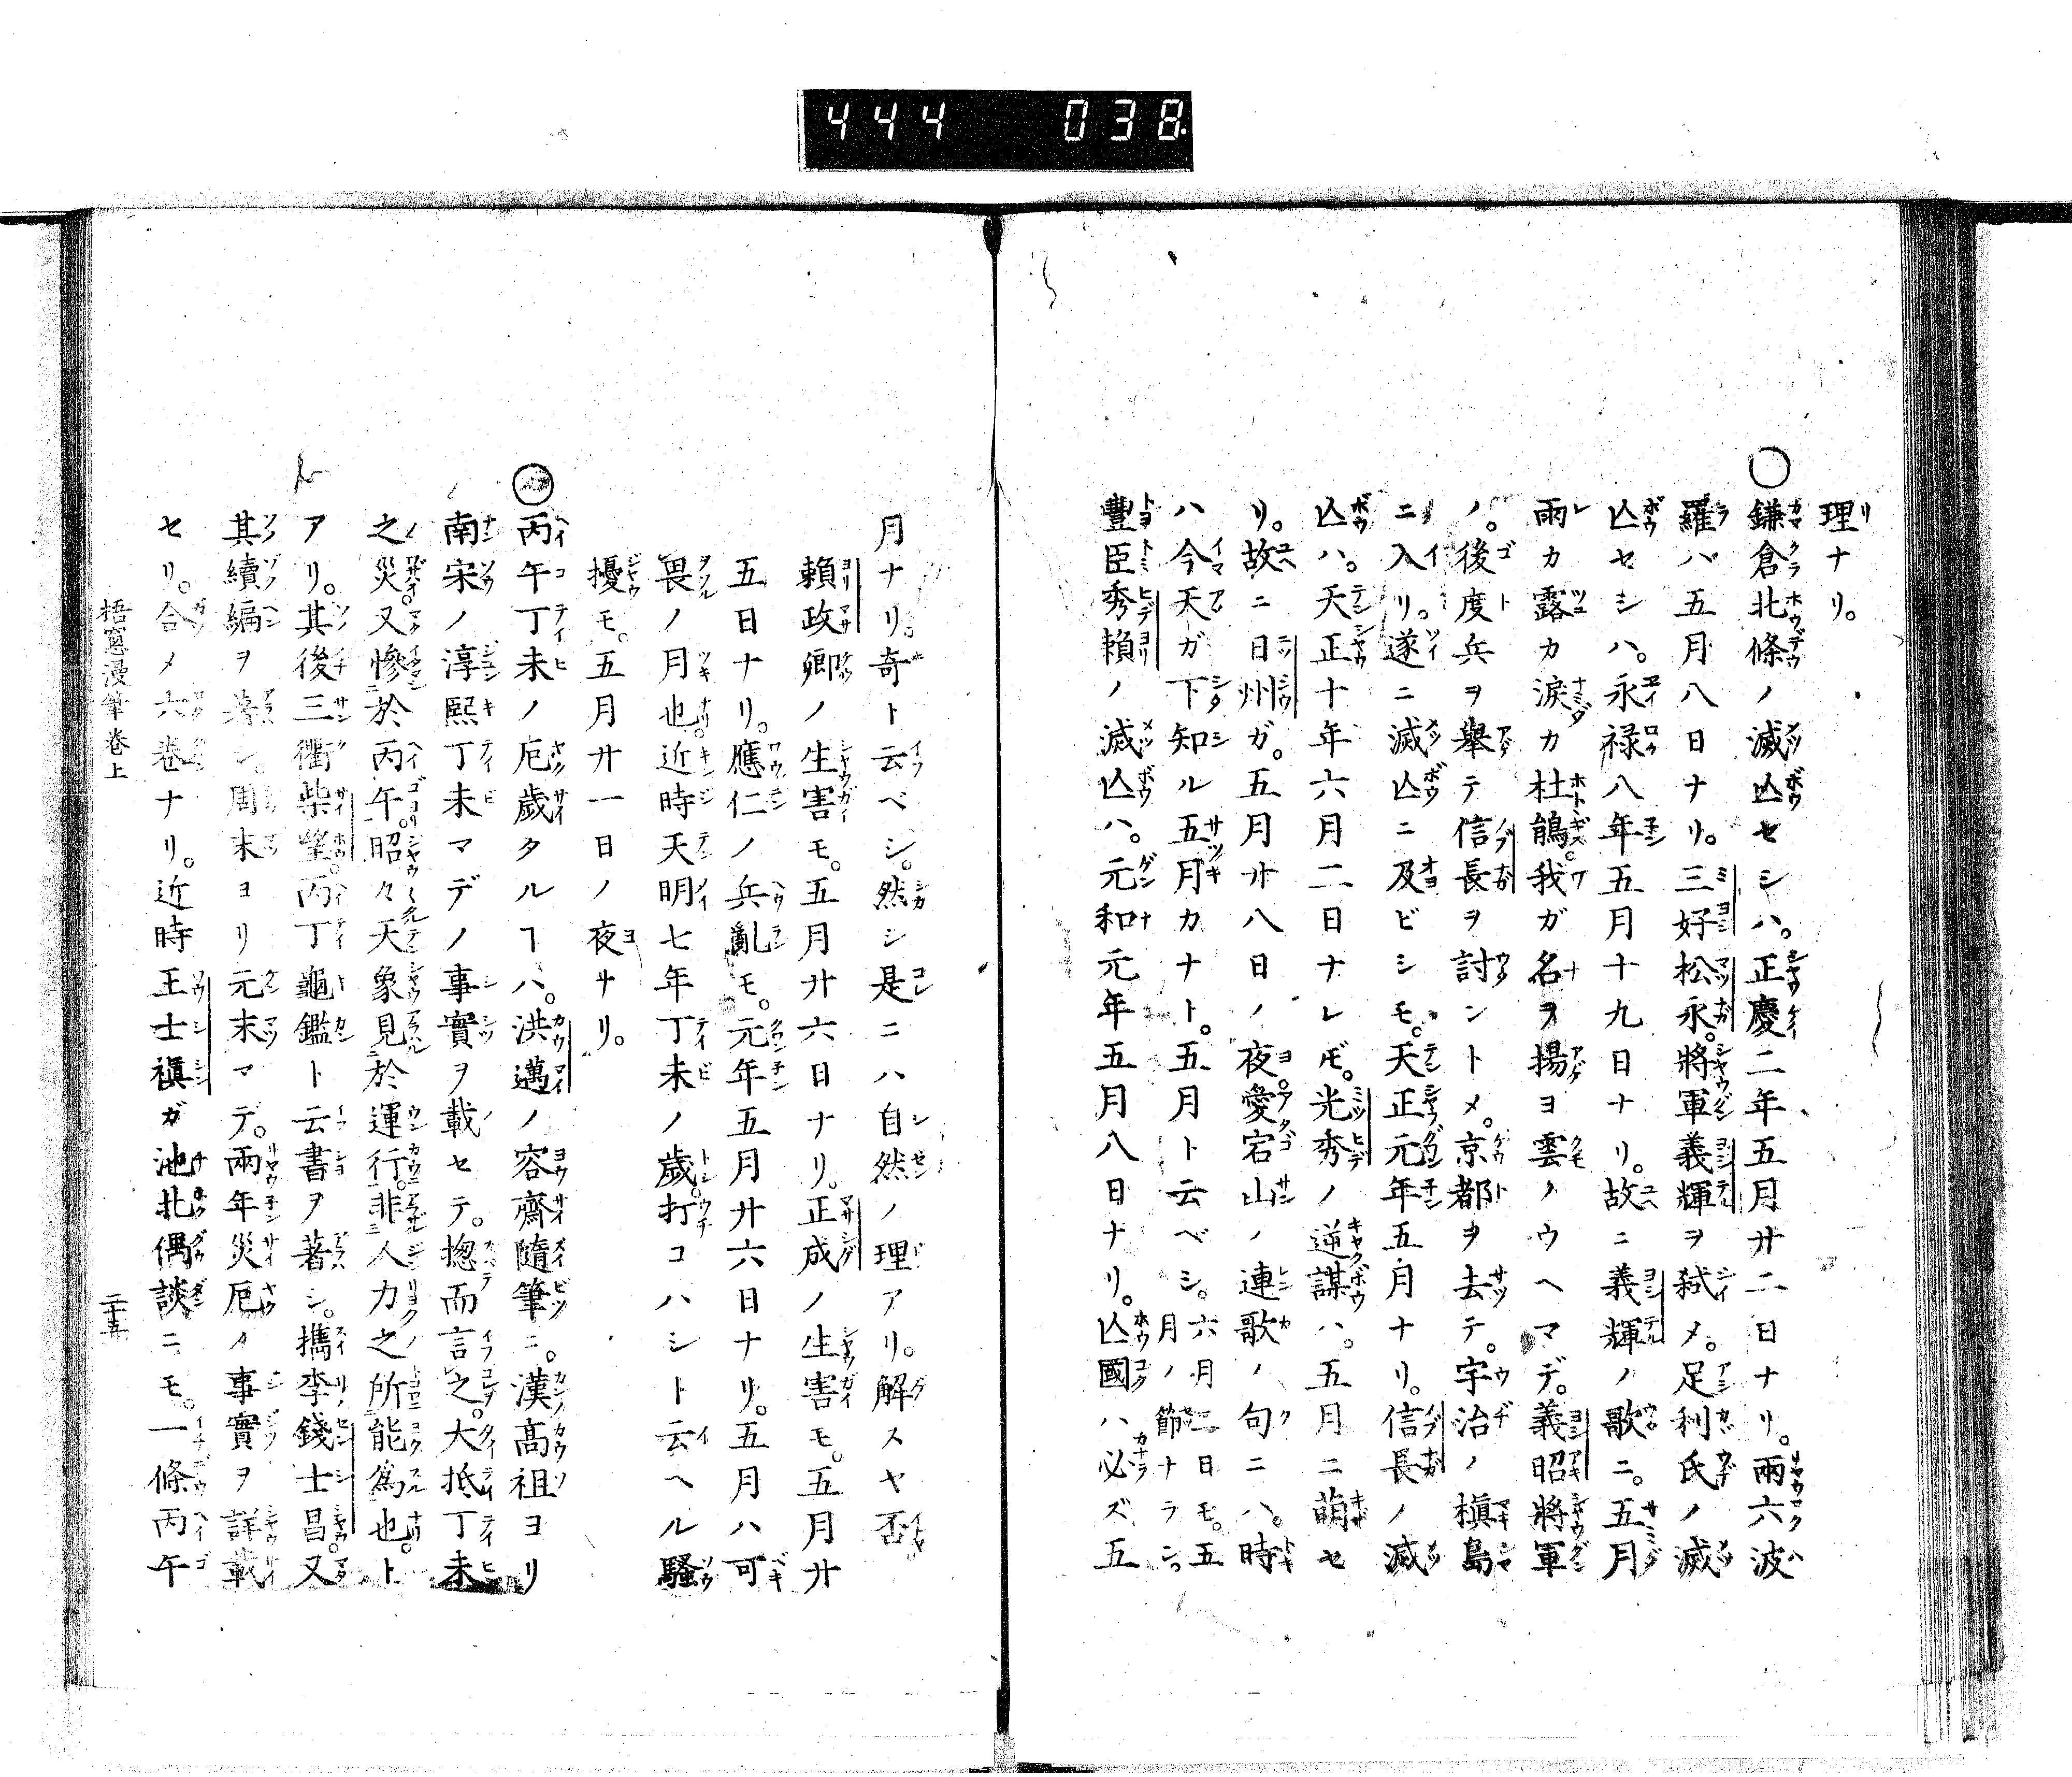 444 038
理ナリ。
○鎌倉北條ノ滅亾セシハ。正慶二年五月廿二日ナリ。兩六波
羅ハ五月八日ナリ。三好松永。將軍義輝ヲ弑メ。足利氏ノ滅
亾セシハ。永禄八年五月十九日ナリ。故ニ義輝ノ歌ニ。五月
雨カ露カ涙カ杜鵑。我ガ名ヲ揚ヨ雲ノウヘマデ。義昭將軍
ノ。後度兵ヲ舉テ信長ヲ討ントメ。京都ヲ去テ。宇治ノ槇島
ニ入リ。遂ニ滅亾ニ及ビシモ。天正元年五月ナリ。信長ノ滅
亾ハ。天正十年六月二日ナレ𪜈。光秀ノ逆謀ハ。五月ニ萌セ
リ。故ニ日州ガ。五月廿八日ノ夜。愛宕山ノ連歌ノ句ニハ。時
ハ今天ガ下知ル五月カナト。五月ト云ベシ。六月二日モ。五月ノ節ナラン。
豐臣秀賴ノ滅亾ハ。元和元年五月八日ナリ。亾國ハ必ズ五
月ナリ。奇ト云ベシ。然シ是ニハ自然ノ理アリ。解スヤ否。
賴政卿ノ生害モ。五月廿六日ナリ。正成ノ生害モ。五月廿
五日ナリ。應仁ノ兵亂モ。元年五月廿六日ナリ。五月ハ可
畏ノ月也。近時天明七年丁未ノ歲。打コハシト云ヘル騷
擾モ。五月廿一日ノ夜ナリ。
○丙午丁未ノ厄歲タルヿハ。洪邁ノ容齋隨筆ニ。漢高祖ヨリ
南宋ノ淳熙丁未マデノ事實ヲ載セテ。揔而言之。大抵丁未
之災。又慘於丙午。昭々天象見於運行。非人力之所能爲也。ト
アリ。其後三衢柴望。丙丁龜鑑ト云書ヲ著シ。檇李錢士昌。又
其續編ヲ著シ。周末ヨリ元末マデ。兩年災厄ノ事實ヲ詳載
セリ。合メ六卷ナリ。近時王士禛ガ池北偶談ニモ。一條丙午
梧窓漫筆卷上 二十五